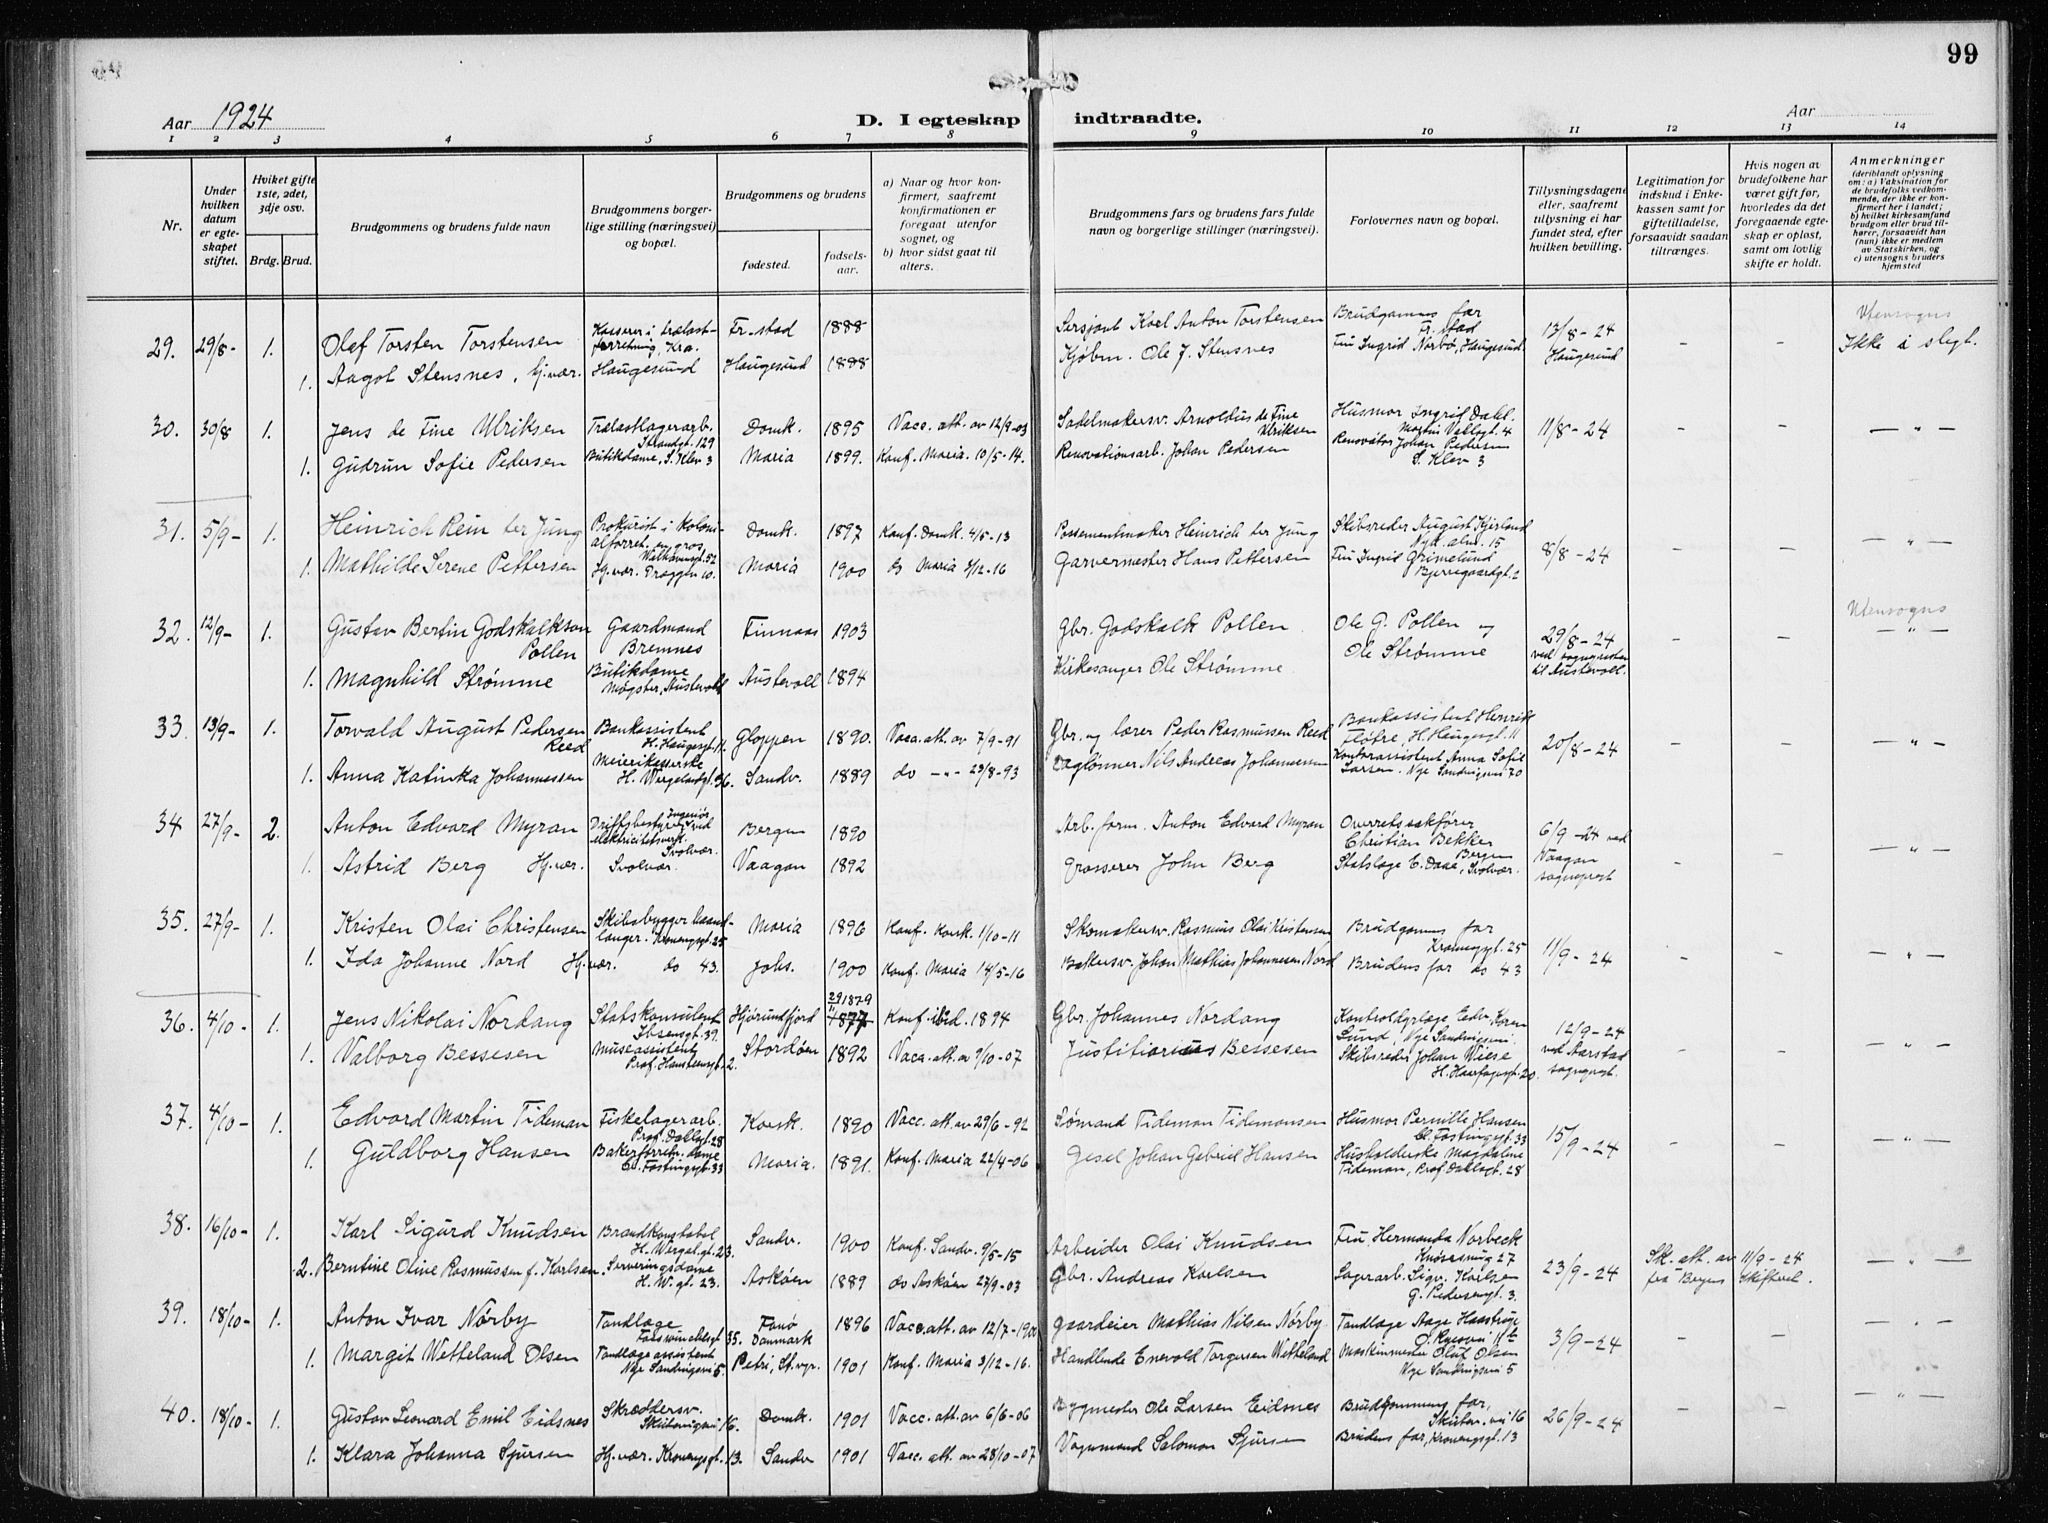 99
Aar 1924
D. I egteskap indtraadte.
Aar
1 2 3 4 5 6 7 8 9 10 11 12 13 14
Nr.
Under hvilken datum er egteskapet stiftet.
Hviket gifte 1ste, 2det, 3dje osv.
Brdg. Brud.
Brudgommens og brudens fulde navn
Brudgommens borgerlige stilling (næringsvei) og bopæl.
Brudgommens og brudens
fødested.
fødselsaar.
a) Naar og hvor konfirmert, saafremt konfirmationen er foregaat utenfor sognet, og
b) hvor sidst gaat til alters.
Brudgommens fars og brudens fars fulde navn og borgerlige stillinger (næringsvei).
Forlovernes navn og bopæl.
Tillysningsdagene eller, saafremt tillysning ei har fundet sted, efter hvilken bevilling.
Legitimation for indskud i Enkekassen samt for giftetilladelse, forsaavidt saadan tiltrænges.
Hvis nogen av brudefolkene har været gift før, hvorledes da det foregaaende egteskap er opløst, samt om lovlig skifte er holdt.
Anmerkninger (deriblandt oplysning om: a) Vaksination for de brudefolks vedkommende, der ikke er konfirmert her i landet; b) hvilket kirkesamfund brudgom eller brud tilhører, forsaavidt han (hun) ikke er medlem av Statskirken, og c) utensogns bruders hjemsted
29. 29/8- 1. Olef Torsten Torstensen Kasserer i trælastforretning, Kra. Fr.stad 1888 Sersjant Karl Anton Torstensen Brudgommens far Fr.stad 13/8-24 Haugesund - - Utensogns Ikke i slegt.
1. Aagot Stensnes, hj.vær. Haugesund Haugesund 1888 Kjøbm. Ole J. Stensnes Fru Ingrid Norbø, Haugesund.
30. 30/8 1. Jens de Fine Ulriksen Trælastlagerarb. Strandgt. 129 Domk. 1895 Vacc. att. av 12/9-03 Sadelmakersv. Arnoldus de Fine Ulriksen Husmor Ingrid Dahl. Martin Vahlsgt. 4 11/8-24 - - -"-
1. Gudrun Sofie Pedersen Butikdame, S. Klev 3 Maria 1899. Konf. Maria. 10/5-14. Renovationsarb. Johan Pedersen Renovatør Johan Pedersen S. Klev 3
31. 5/9- 1. Heinrich Rein ter Jung Prokurist i Kolonialforret. en gros Domk. 1897 Konf. Domk. 4/5-13 Possementmaker Heinrich ter Jung Skibsreder August Kjerland Nyg. alm. 15 8/8-24 - - -"-
1. Mathilde Serene Pettersen Hj.vær. Dræggen 10. Maria 1900 do Maria 3/12-16 Garvermester Hans Pettersen Fru Ingrid Grimelund Bjerregaardgt. 2
32. 12/9- 1. Gustav Bertin Godskalkson Pollen Gaardmand Bremnes Finnaas 1903 Gbr. Godskalk Pollen Ole G. Pollen og 29/8-24 ved sogneprsten til Austevoll. - - Utensogns -"-
1. Magnhild Strømme Butikdame Møgster, Austevold Austevoll 1894 Kirkesanger Ole Strømme Ole Strømme
33. 13/9- 1. Torvald August Pedersen Reed Bankassistent H. Haugesgt. 11. Gloppen 1890. Vacc. att. av 7/9-91 Gbr. og lærer Peder Rasmussen Reed Bankassistent Henrik Fløtre, H. Haugesgt. 11 20/8-24 - - -"-
1. Anna Katinka Johannessen Meierikasserske H. Wergelandsgt. 36. Sandv. 1889 do -"- 23/8-93 Daglønner Nils Andreas Johannessen Kontorassistent Anna Sofie Larsen. Nye Sandviksvei 70
34 27/9- 2. Anton Edvard Myran Ingeniør Driftsbestyrer ved elektricitetsverk. Svolvær. Bergen 1890 Arb. form. Anton Edvard Myran Overretssakfører Christian Bekker Bergen 6/9-24 ved Vaagan sogneprest - - -"-
1. Astrid Berg Hj.vær. Svolvær. Vaagan 1892 Grosserer John Berg Statslæge C. Daae, Svolvær.
35. 27/9- 1. Kristen Olai Christensen Skibsbygger haandlanger. Kronengsgt. 25 Maria 1896 Konf. Korsk. 1/10-11 Skomakersv. Rasmus Olai Kristensen Brudgommens far Kronengsgt. 25 11/9-24 - - -"-
1. Ida Johanne Nord Hj.vær. do 43. Johs. 1900 Konf. Maria 14/5-16 Bakkersv. Johan Mathias Johannesen Nord Brudens far do 43
36. 4/10- 1. Jens Nikolai Nordang Statskonsulent Ibsensgt. 39. Hjørundfjord 29/11 1879 1877 Konf. ibid. 1894 Gbr. Johannes Nordang Kontroldyrlæge Edv. Koren Lund, Nye Sandviksvei. 12/9-24 ved Aarstad sogneprest. - - -"-
1. Valborg Bessesen Museassistent Prof. Hansteensgt. 2. Stordøen 1892 Vacc. att. av 9/10-07 Justitiarius Bessesen Skibsreder Johan Wiese H. Haarfagresgt. 20.
37. 4/10- 1. Edvard Martin Tideman Fiskelagerarb. Prof. Dahlsgt. 28 Korsk. 1890 Vacc. att. av 29/6-92 Sømand Tideman Tidemansen Husmor Pernille Hansen Cl. Fastingsgt. 33 15/9-24 - - -"-
1. Guldborg Hansen Bakerforretn. dame Cl. Fastingsgt. 33 Maria. 1891. Konf. Maria 22/4-06 Gesel Johan Gabriel Hansen Husholderske Magdaline Tideman, Prof. Dahlsgt. 28
38. 16/10- 1. Karl Sigurd Knudsen Brandkonstabel H. Wergel.gt. 23. Sandv. 1900 Konf. Sandv. 9/5-15 Arbeider Olai Knudsen Fru Hermanda Norbeck Knøsesmug 27 23/9-24 Sk. att. av 11/9-24 fra Bergens Skifteret. -"-
2. Berntine Oline Rasmussen f. Karlsen. Serveringsdame H. W. gt. 23. Askøen 1889 do Askøen 27/9-03 Gbr. Andreas Karlsen Lagerarb. Sigv. Karlsen G. Pedersensgt. 3.
39. 18/10- 1. Anton Ivar Nørby Tandlæge Forswinckelsgt 35. Fanø Danmark 1896 Vacc. att. av 12/7-1900 Gaardeier Mathias Nilsen Nørby Tandlæge Aage Haastrup 3/9-24 - - -"-
1. Margit Wetteland Olsen Tandlægeassistent Nye Sandviksvei 5. Petri, St.vgr. 1901 Konf. Maria 3/12-16. Handlende Enevold Torgersen Wetteland Maskinmester Oluf Olsen Nye Sandviksvei 5
40. 18/10- 1. Gustav Leonard Emil Eidsnes Skræddersv. Skutevigsvei 16. Domk. 1901 Vacc. att. av 6/6-06 Bygmester Ole Larsen Eidsnes Brudgommens far, Skutev. vei 16 26/9-24 - - -"-
1. Klara Johanna Sjursen Hj.vær. Kronengsgt. 13. Sandv 1901 Vacc. att. av 28/10-07 Vognmand Salomon Sjursen Brudens far, Kronengsgt. 13